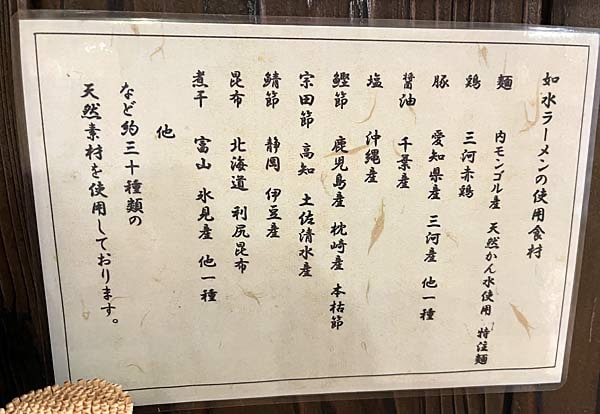 如水ラーメンの使用食材
麺 内モンゴル産 天然かん水使用 特注麺
鶏 三河赤鶏
豚 愛知県産 三河産 他一種
醤油 千葉産
塩 沖縄産
鰹節 鹿児島産 枕崎産 本枯節
宗田節 高知 土佐清水産
鯖節 静岡 伊豆産
昆布 北海道 利尻昆布
煮干 富山 氷見産 他一種
他
など約三十種類の
天然素材を使用しております。